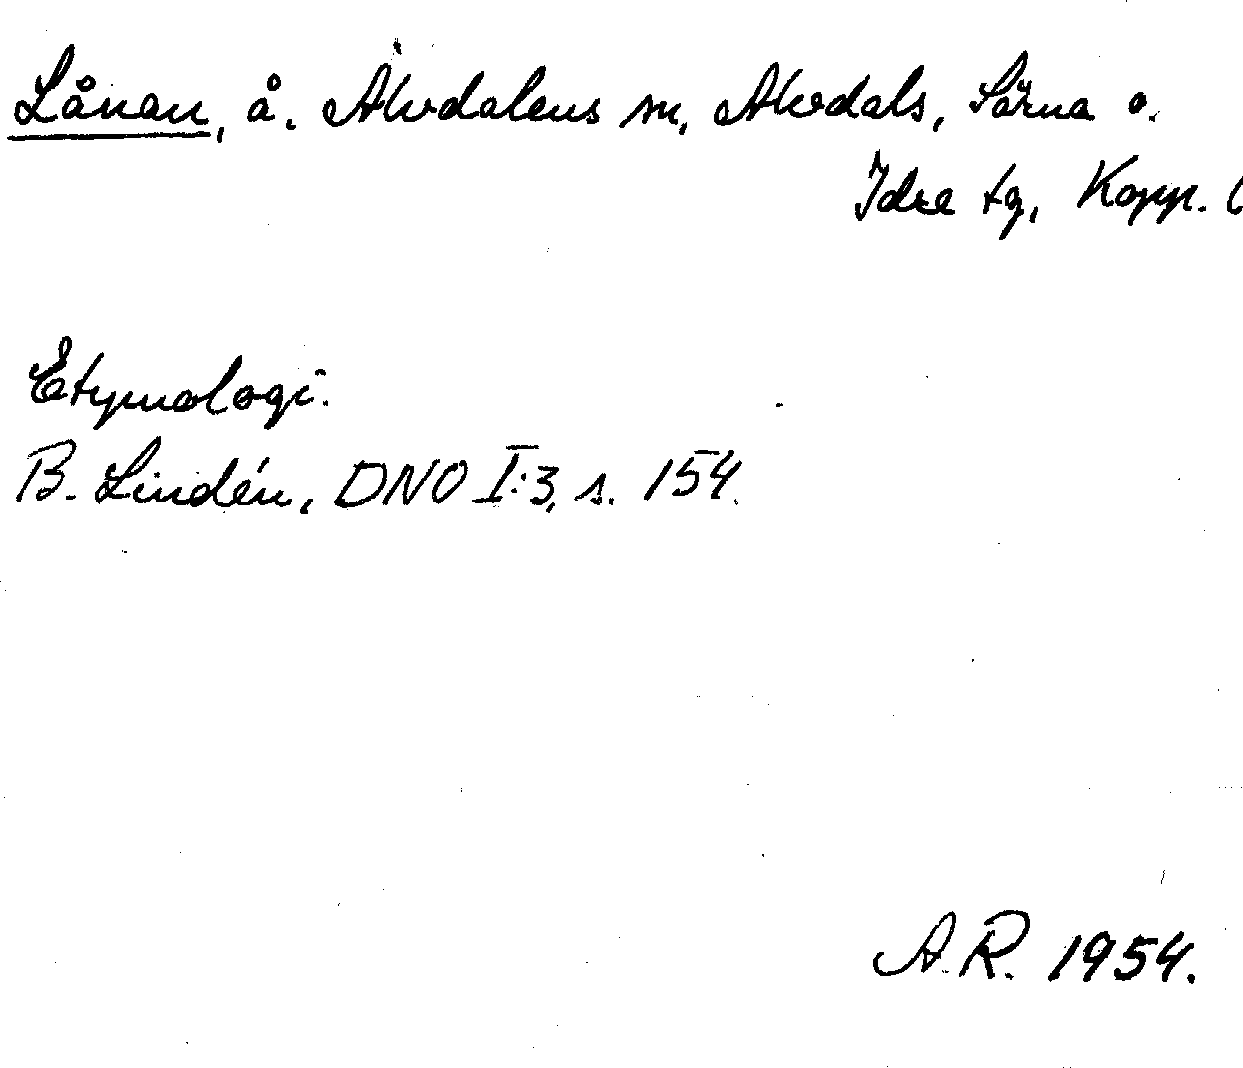 Lånan, å. Älvdalens sn, Älvdals, Särna o.
Idre tg, Kopp. l
Etymologi.
B. Lindén, DNO I:3, s. 154.
A.R. 1954.